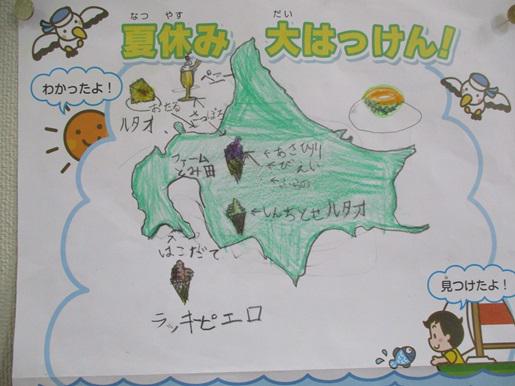 なつ やす だい
夏休み 大はっけん!
わかったよ!
ルタオ
おたる
さっぽろ
ファーム
とみ田
←あさひ川
←びえい
←しんちとせルタオ
はこだて
ラッキピエロ
見つけたよ!